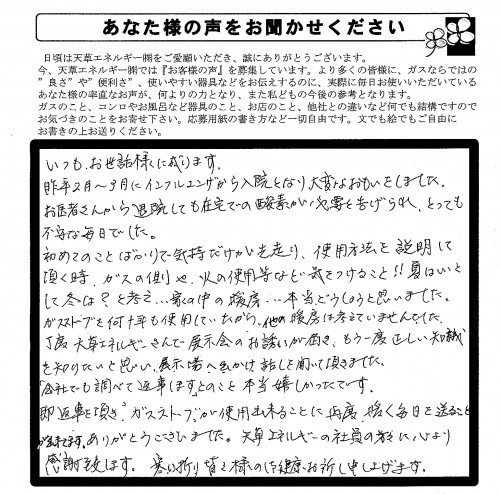 あなた様の声をお聞かせください
日頃は天草エネルギー㈱をご愛顧いただき、誠にありがとうございます。
今、天草エネルギー㈱では『お客様の声』を募集しています。より多くの皆様に、ガスならではの
”良さ”や”便利さ”、使いやすい器具などをお伝えするのに、実際に毎日お使いいただいている
あなた様の率直なお声が、何よりの力となり、また私どもの今後の参考となります。
ガスのこと、コンロやお風呂など器具のこと、お店のこと、他社との違いなど何でも結構ですので
お気づきのことをお寄せ下さい。応募用紙の書き方など一切自由です。文でも絵でもご自由に
お書きの上お送りください。
いつもお世話様に成ります。
昨年2月〜3月にインフルエンザから入院となり大変なおもいをしました。
お医者さんから退院しても在宅での酸素が必要を告げられ、とっても
不安な毎日でした。
初めてのことばかりで気持だけが先走り、使用方法を説明して
頂く時、ガスの側や、火の使用等など気をつけること!!夏はいいと
して冬は?と考え…家の中の暖房…本当どうしようと思いました。
ガスストーブを何十年も使用していたから、他の暖房は考えていませんでした。
丁度天草エネルギーさんで展示会のお誘いが届き、もう一度正しい知識
を知りたいと思い、展示場へ出かけ話しを聞いて頂きました。
「会社でも調べて返事します」とのこと本当嬉しかったです。
即返事を頂き、ガスストーブが使用出来ることに再度、暖く毎日を送ること
が出来てます。ありがとうございました。天草エネルギーの社員の皆さんに心より
感謝致します。寒い折り皆々様のご健康お祈し申し上げます。